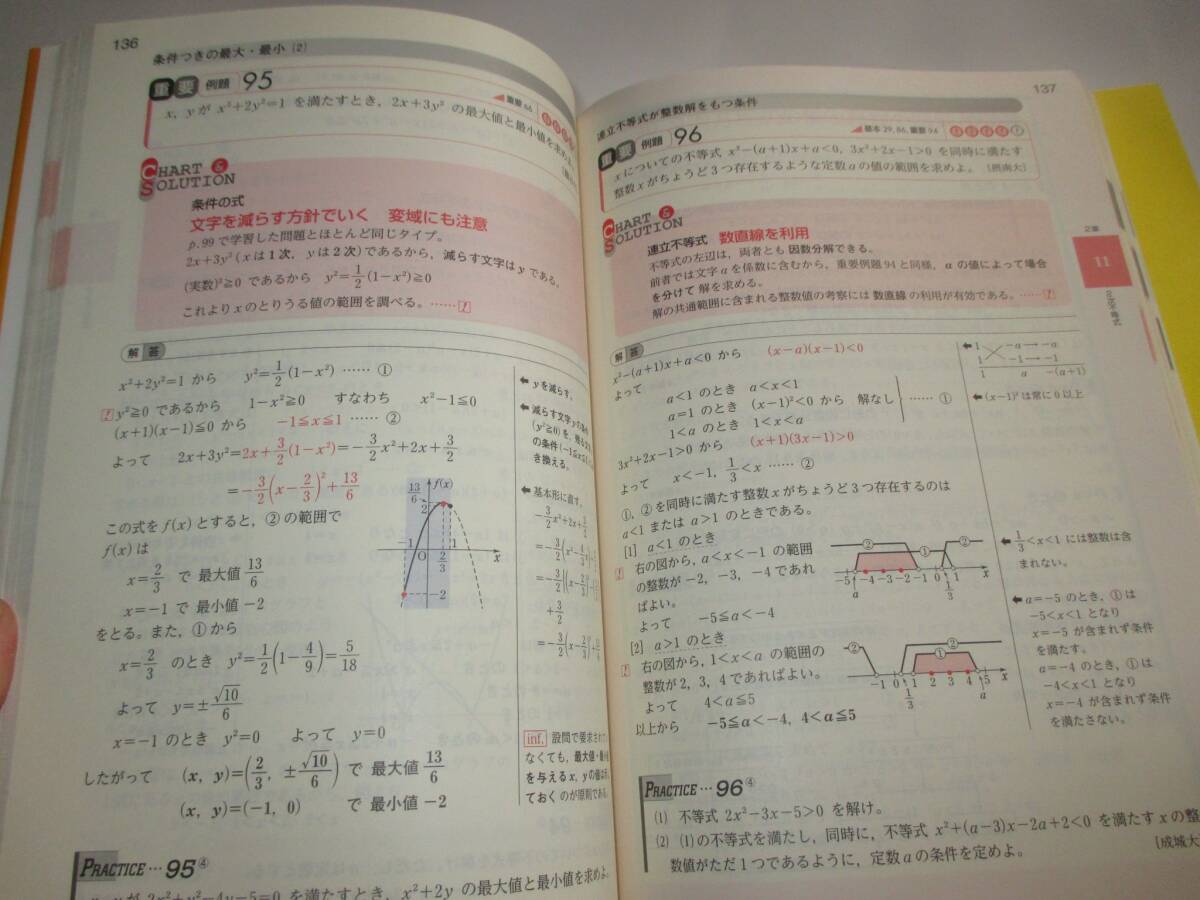 136
条件つきの最大・最小 (2)
重要 例題 95
重要 66
x, yが x²+2y²=1 を満たすとき, 2x+3y² の最大値と最小値を求め
CHART & SOLUTION
条件の式
文字を減らす方針でいく 変域にも注意
p.99で学習した問題とほとんど同じタイプ。
2x+3y² (xは1次, yは2次) であるから, 減らす文字はyである。
(実数)²≧0 であるから y²=1/2(1−x²)≧0
これよりxのとりうる値の範囲を調べる。……!
解答
x²+2y²=1 から y²=1/2(1−x²) …… ①
! y²≧0 であるから 1−x²≧0 すなわち x²−1≦0
(x+1)(x−1)≦0 から −1≦x≦1 …… ②
よって 2x+3y²=2x+3/2(1−x²)=−3/2x²+2x+3/2
=−3/2(x−2/3)²+13/6
この式をf(x)とすると, ②の範囲で
f(x)は
x=2/3 で 最大値 13/6
x=−1 で 最小値 −2
をとる。また, ①から
x=2/3 のとき y²=1/2(1−4/9)=5/18
よって y=±√10/6
x=−1 のとき y²=0 よって y=0
したがって (x, y)=(2/3, ±√10/6) で 最大値 13/6
(x, y)=(−1, 0) で 最小値 −2
13/6
f(x)
3/2
−1
O
1
2/3
x
−2
← yを減らす。
← 減らす文字
(y²≧0)を,
の条件(−1≦x≦1
き換える。
← 基本形に直す。
−3/2x²+2x+3/2
=−3/2(x²−4/3
+3/2
inf. 設問で要求されて
なくても, 最大値・最小
を与えるx, yの値は
ておくのが原則である。
PRACTICE … 95④
を満たすとき, x²+2y の最大値と最小値を求めよ。
137
連立不等式が整数解をもつ条件
重要 例題 96
基本 29, 86, 重要 94
xについての不等式 x²−(a+1)x+a<0, 3x²+2x−1>0 を同時に満たす
整数xがちょうど3つ存在するような定数aの値の範囲を求めよ。 [摂南大]
CHART & SOLUTION
連立不等式 数直線を利用
不等式の左辺は, 両者とも因数分解できる。
前者では文字aを係数に含むから, 重要例題94と同様, aの値によって場合
を分けて解を求める。
解の共通範囲に含まれる整数値の考察には数直線の利用が有効である。……!
2章
11
2次不等式
解答
x²−(a+1)x+a<0 から (x−a)(x−1)<0
よって a<1 のとき a<x<1
a=1 のとき (x−1)²<0 から 解なし …… ①
1<a のとき 1<x<a
3x²+2x−1>0 から (x+1)(3x−1)>0
よって x<−1, 1/3<x …… ②
①, ②を同時に満たす整数xがちょうど3つ存在するのは
a<1 または a>1 のときである。
[1] a<1 のとき
! 右の図から, a<x<−1 の範囲
の整数が −2, −3, −4 であれ
ばよい。
よって −5≦a<−4
[2] a>1 のとき
! 右の図から, 1<x<a の範囲の
整数が 2, 3, 4 であればよい。
よって 4<a≦5
以上から −5≦a<−4, 4<a≦5
② ① ②
−5 −4 −3 −2 −1 0 1 x
a 1/3
② ① ②
−1 0 1 2 3 4 5 x
1/3 a
← 1 −a → −a
1 −1 → −1
1 a −(a+1)
← (x−1)² は常に0以上
← 1/3<x<1 には整数は含
まれない。
← a=−5 のとき, ①は
−5<x<1 となり
x=−5 が含まれず条件
を満たす。
a=−4 のとき, ①は
−4<x<1 となり
x=−4 が含まれず条件
を満たさない。
PRACTICE … 96④
(1) 不等式 2x²−3x−5>0 を解け。
(2) (1)の不等式を満たし, 同時に, 不等式 x²+(a−3)x−2a+2<0 を満たすxの整
数値がただ1つであるように, 定数aの条件を定めよ。 [成城大